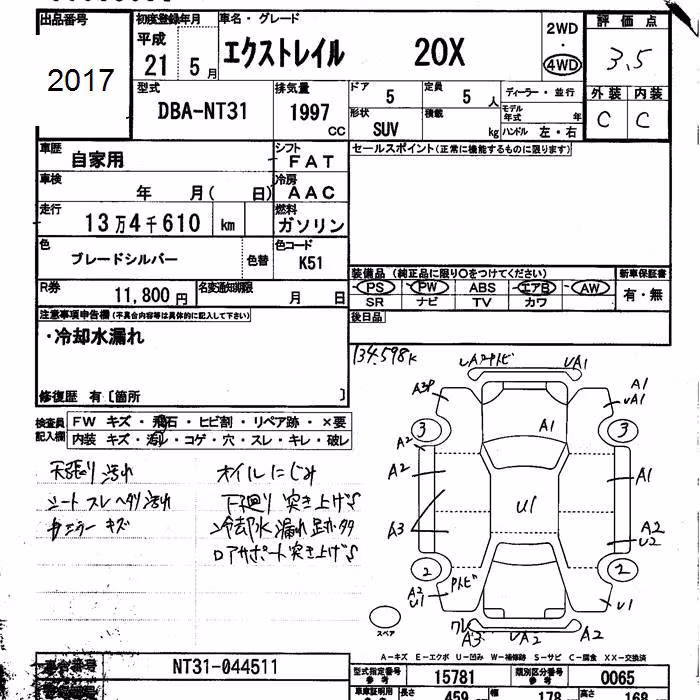 出品番号
2017
初度登録年月
平成
21 5 月
車名・グレード
エクストレイル 20X
2WD
・
4WD
評価点
3.5
外装 内装
C C
型式
DBA-NT31
排気量
1997
CC
ドア
5
定員
5 人
形状
SUV
積載
kg
ディーラー・並行
モデル
年式 年
ハンドル 左・右
車歴
自家用
シフト
FAT
車検
年 月( 日)
冷房
AAC
走行
13万4千610 km
燃料
ガソリン
色
ブレードシルバー
色替
色コード
K51
R券
11,800円
名変通知期限
月 日
セールスポイント(正常に機能するものに限ります)
装備品 (純正品に限り○をつけてください)
PS PW ABS エアB AW
SR ナビ TV カワ
新車保証書
有・無
後日品
注意事項申告欄(不具合内容等は具体的に記入して下さい)
・冷却水漏れ
修復歴 有〔箇所 〕
検査員
記入欄
FW キズ・飛石・ヒビ割・リペア跡・×要
内装 キズ・汚れ・コゲ・穴・スレ・キレ・破レ
天張り汚れ
シートスレヘタリ汚れ
オイルにじみ
下廻り突き上げ
冷却水漏れ跡
ロアサポート突き上げ
134,598K
UA1
A1
UA1
3
3
A1
A2
A2
A1
U1
A3
A2
U2
2
2
A2
U1
U1
A3
UA2
A2
スペア
A-キズ E-エクボ U-凹み W-補修跡 S-サビ C-腐食 XX-交換済
車台番号
NT31-044511
型式指定番号
参考
15781
類別区分番号
参考
0065
車庫証明用
参考
長さ
459
幅
178
高さ
168